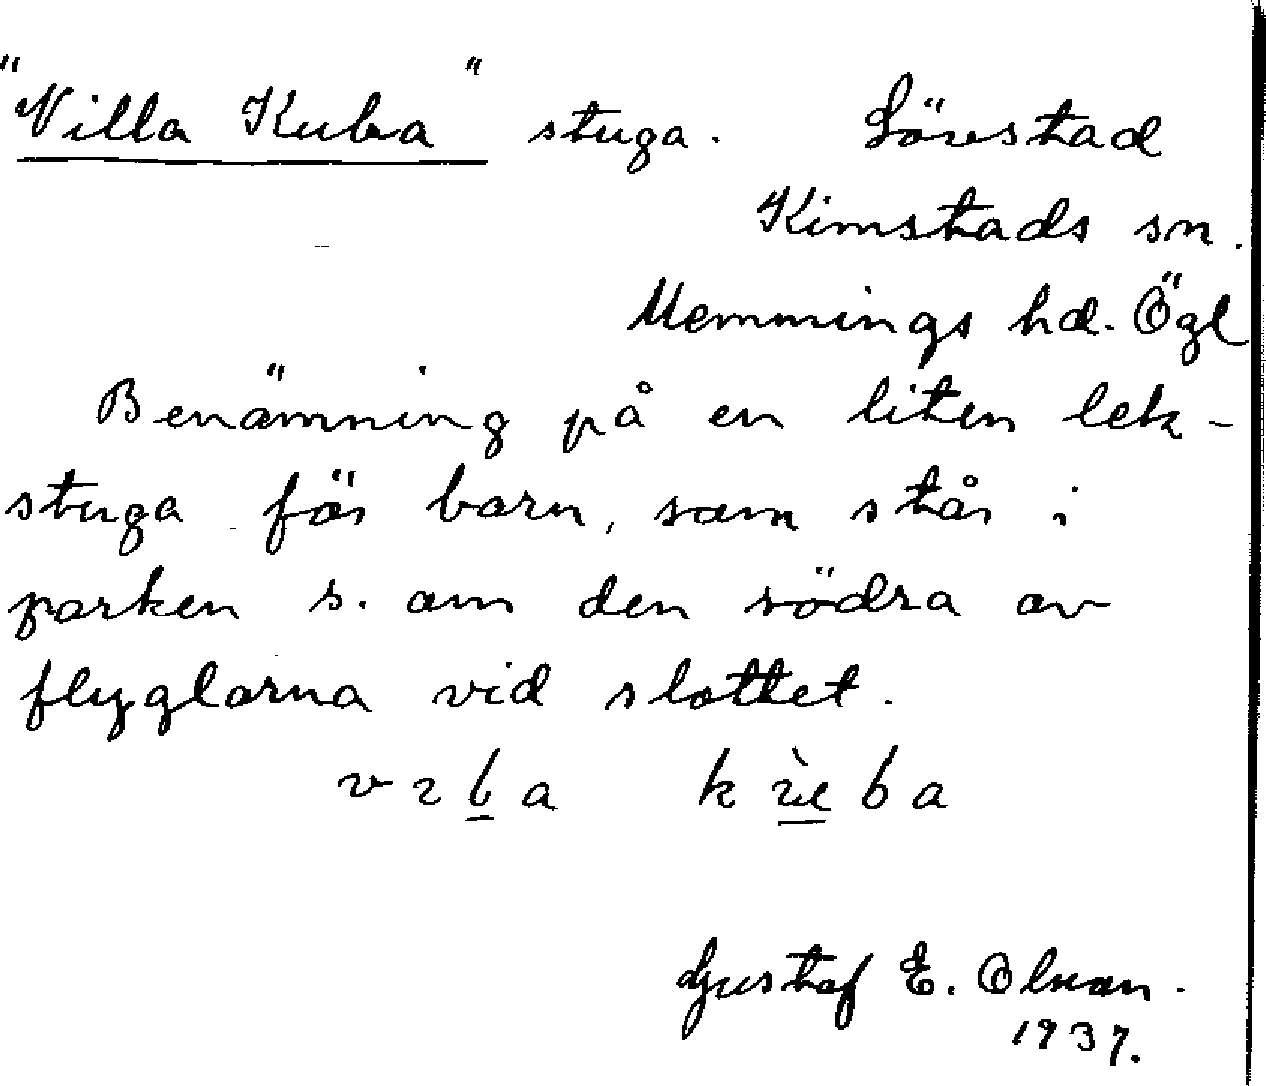 "Villa Kuba" stuga. Lövestad
Kimstads sn.
Memmings hd. Ögl
Benämning på en liten lek-
stuga för barn, som står i
parken s. om den södra av
flyglarna vid slottet.
Gustaf E. Olson.
1937.